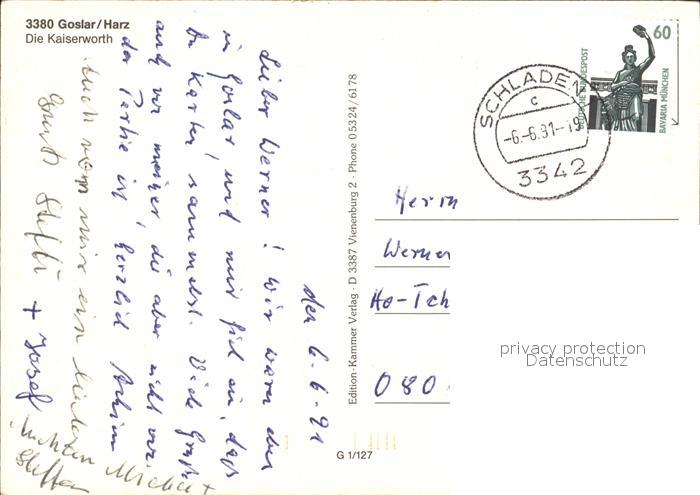 3380 Goslar/Harz
Die Kaiserworth
den 6.6.91
Lieber Werner! Wir waren eben
in Goslar, und mir fiel ein, daß
Du Karten sammelst. Viele Grüße
auch von meiner, die aber nicht von
der Partie ist herzlich Achim
Auch von mir ein lieber
Gruß Steffi + Josef
Steffen
Edition-Kammer Verlag · D 3387 Vienenburg 2 · Phone 05324/6178
G 1/127
SCHLADEN
c
-6.-6.91-19
3342
60
DEUTSCHE BUNDESPOST
BAVARIA MÜNCHEN
Herrn
Werner
Ho-Tch
080
privacy protection
Datenschutz